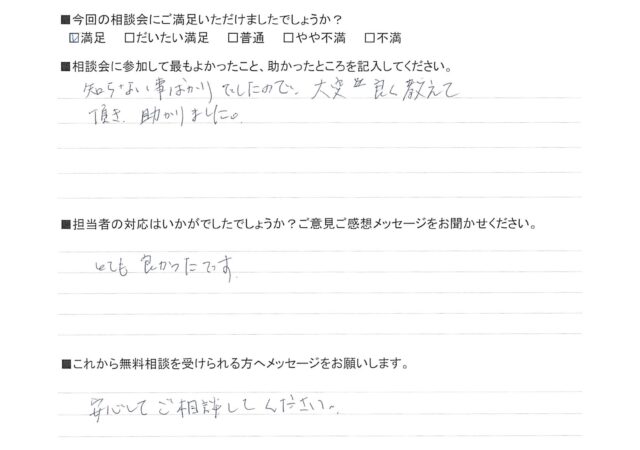 ■今回の相談会にご満足いただけましたでしょうか？
☑満足 □だいたい満足 □普通 □やや不満 □不満
■相談会に参加して最もよかったこと、助かったところを記入してください。
知らない事ばかりでしたので、大変良く教えて
頂き、助かりました。
■担当者の対応はいかがでしたでしょうか？ご意見ご感想メッセージをお聞かせください。
とても良かったです
■これから無料相談を受けられる方へメッセージをお願いします。
安心してご相談してください。